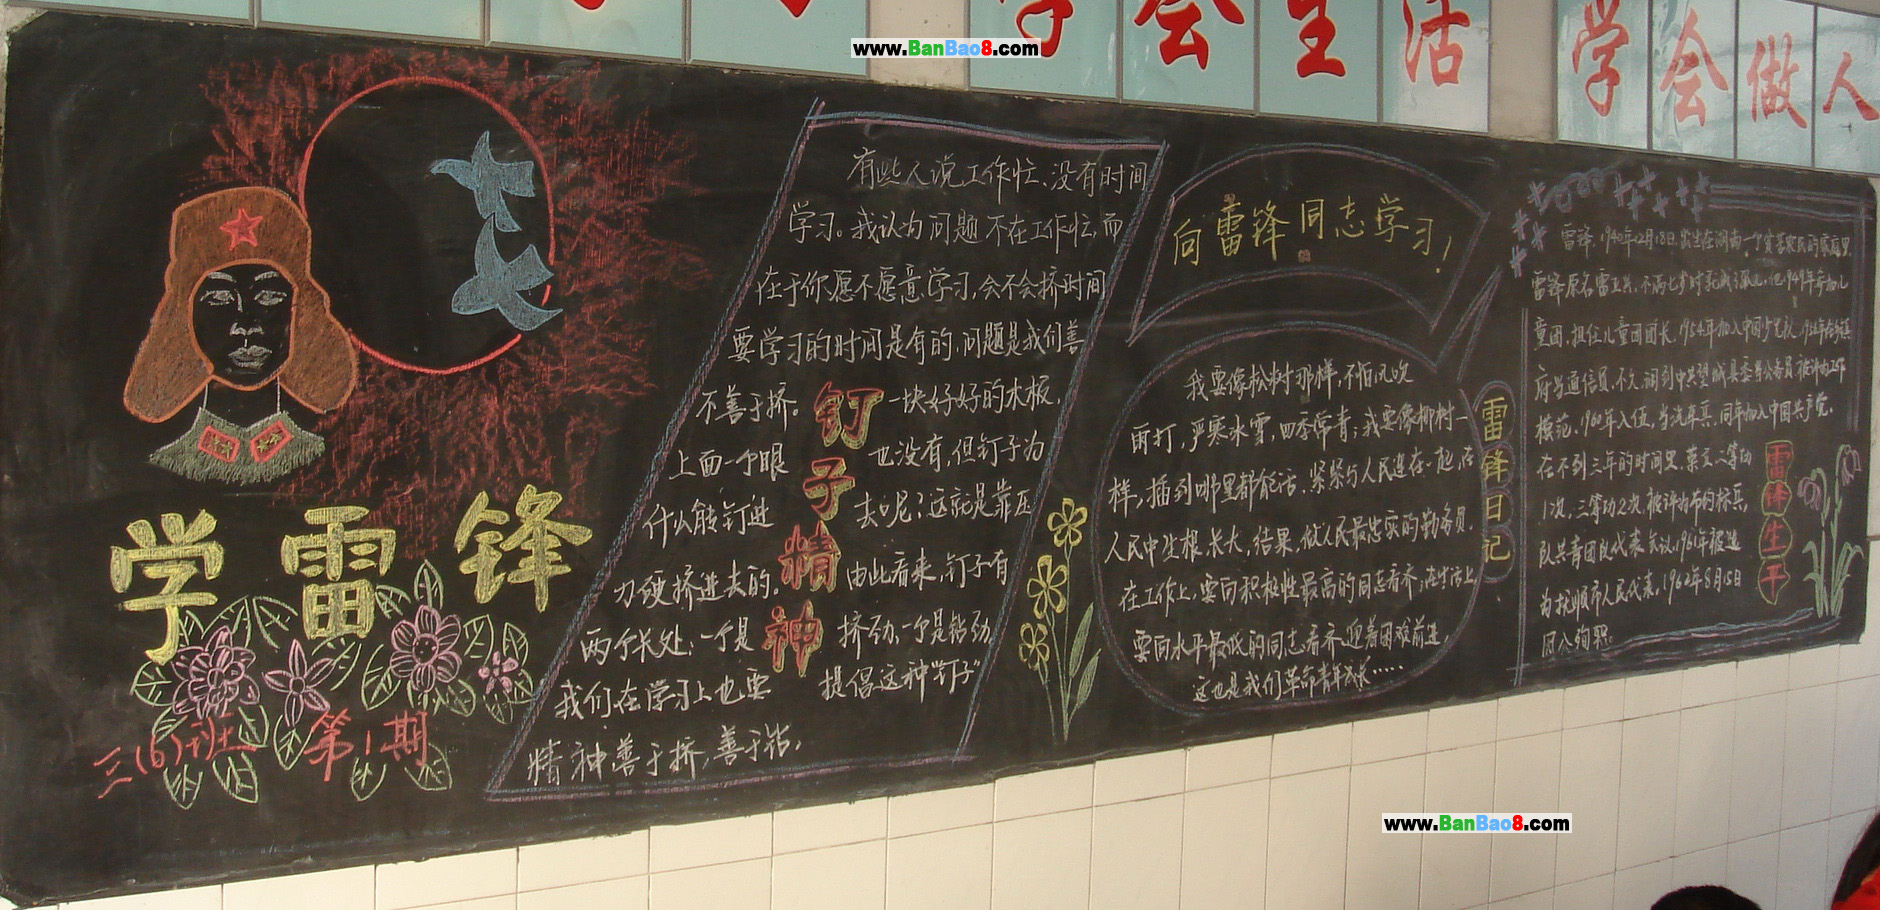 学会生活
学会做人
www.BanBao8.com
学雷锋
三(6)班 第1期
钉子精神
有些人说工作忙、没有时间
学习。我认为问题不在工作忙,而
在于你愿不愿意学习,会不会挤时间
要学习的时间是有的,问题是我们善
不善于挤。 一块好好的木板,
上面一个眼 也没有,但钉子为
什么能钉进 去呢?这就是靠压
力硬挤进去的。 由此看来,钉子有
两个长处:一个是 挤劲,一个是钻劲
我们在学习上也要 提倡这种"钉子"
精神,善于挤,善于钻,
向雷锋同志学习!
雷锋日记
我要像松树那样,不怕风吹
雨打,严寒冰雪,四季常青;我要像柳树一
样,插到哪里都能活、紧紧与人民连在一起,在
人民中生根,长大,结果,做人民最忠实的勤务员.
在工作上,要向积极性最高的同志看齐,在生活上,
要向水平最低的同志看齐,迎着困难前进,
这也是我们革命青年成长......
雷锋生平
雷锋,1940年12月18日,出生在湖南一个贫苦农民的家庭里.
雷锋原名雷正兴,不满七岁时就成了孤儿,他1949年参加儿
童团,担任儿童团团长,1954年加入中国少先队,
府当通信员,不久,调到中共望城县委当公务员,被评为工作
模范,1960年入伍,当汽车兵,同年加入中国共产党,
在不到三年的时间里,荣立二等功
1次,三等功2次,被评为 标兵,
队共青团 代表会议,1961年被选
为抚顺市人民代表,1962年8月15日
因公殉职.
www.BanBao8.com